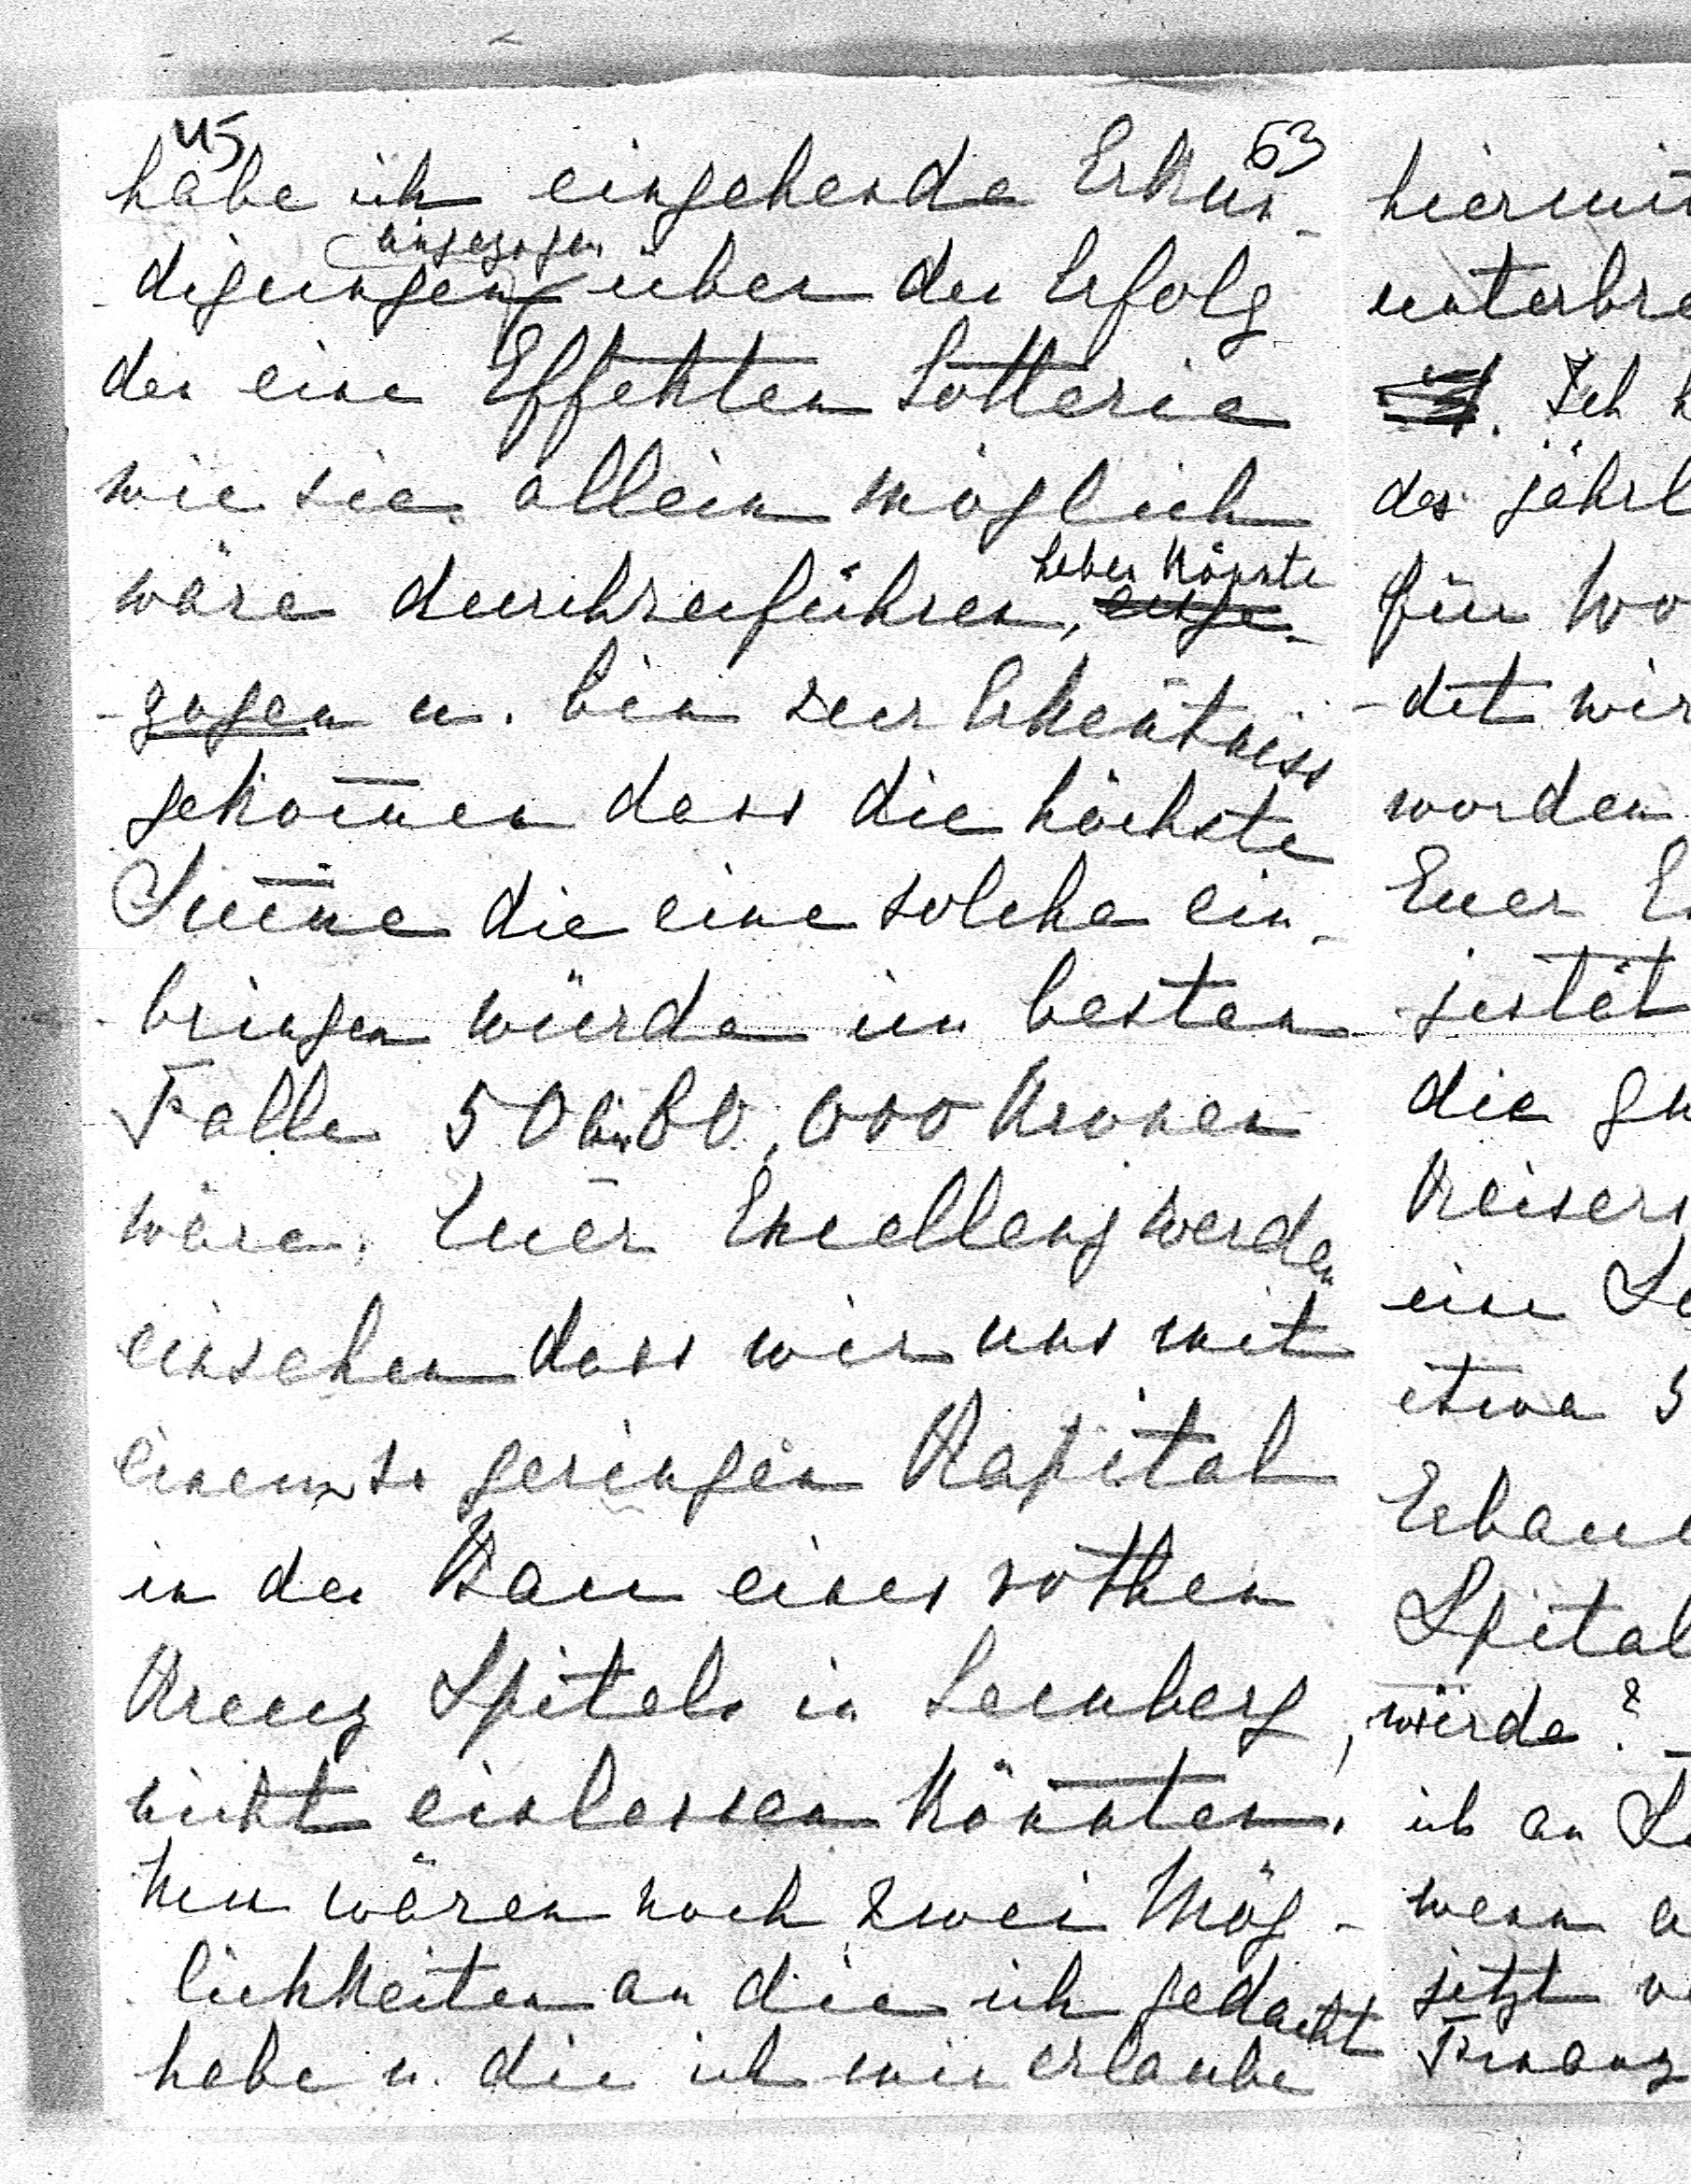 45
63
habe ich eingehende Erkun-
eingezogen
-digungen über den Erfolg
den eine Effekten Lotterie
wie sie allein möglich
haben könnte
wäre durchzuführen, einge-
-zogen u. bin zur Erkentniss
gekom̅en dass die höchste
Sum̅e die eine solche ein-
-bringen würde im besten
Falle 50 bis 60,000 Kronen
wäre. Euer Excellenz werden
einsehen dass wir uns mit
einem so geringen Kapital
in den Bau eines rothen
Kreuz Spitals in Lemberg,
nicht einlassen könnten.
Nun wären noch zwei Mög-
lichkeiten an die ich gedacht
habe u. die ich mir erlaube
hiermit
unterbre
Ich h
des jährl
für Wo
-det wir
worden
Euer E
-jestät
die gn
Kaisers
eine
etwa 5
Erbau
Spital
würde?
ich an
wenn a
jetzt v
Finanz